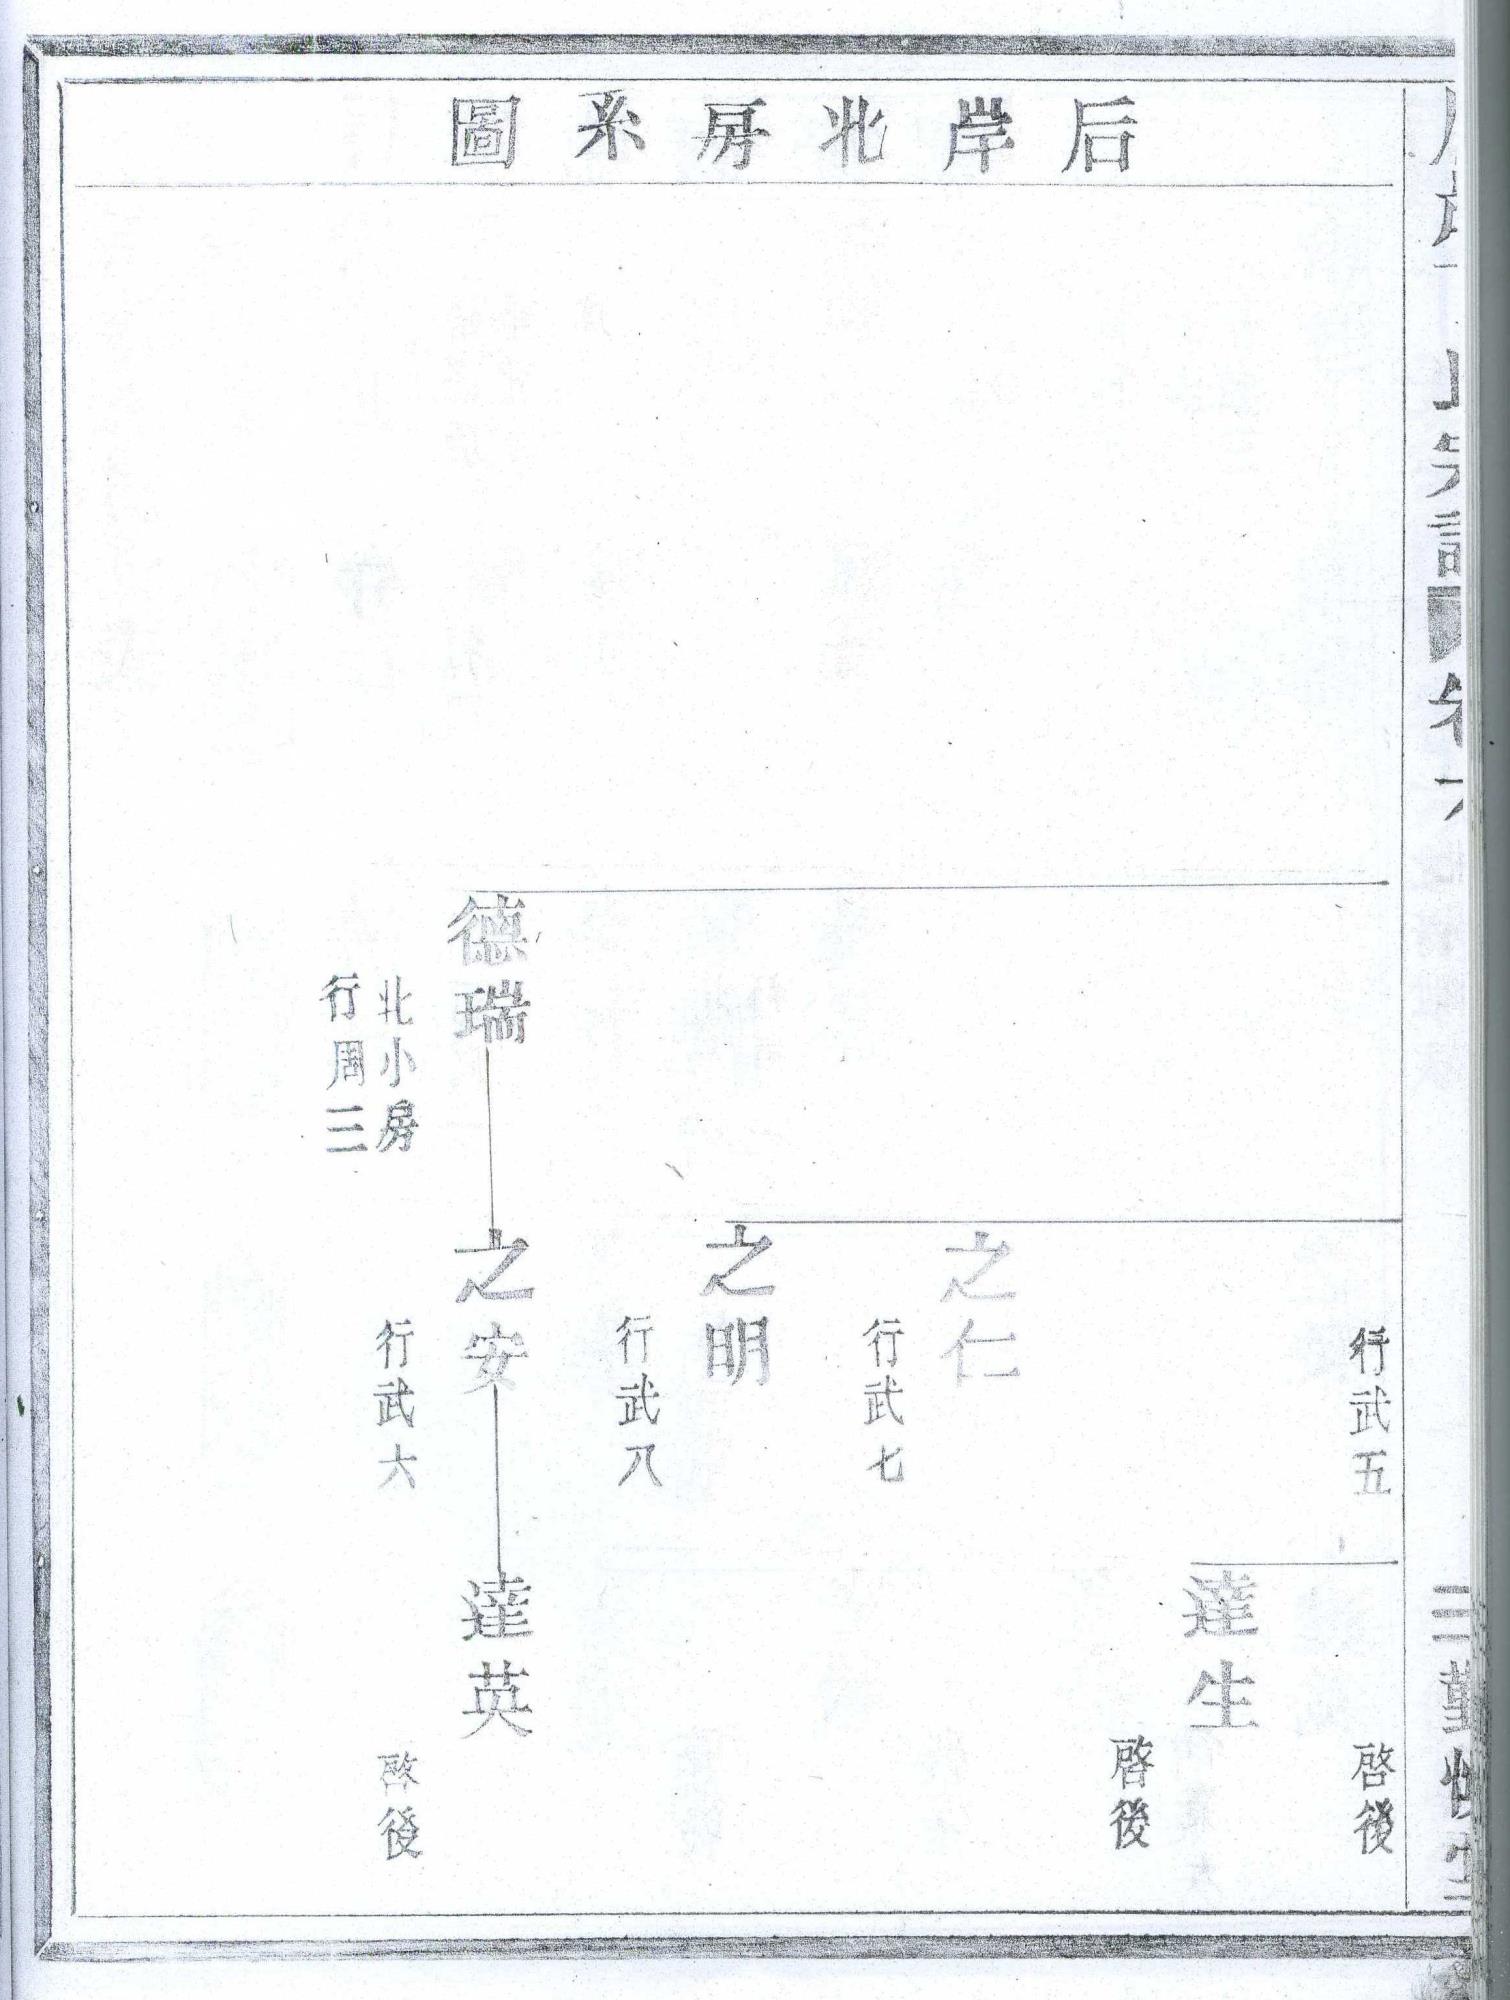 后岸北房系圖
行武五
啓後
達生
啓後
之仁
行武七
之明
行武八
德瑞
北小房
行周三
之安
行武六
達英
啓後